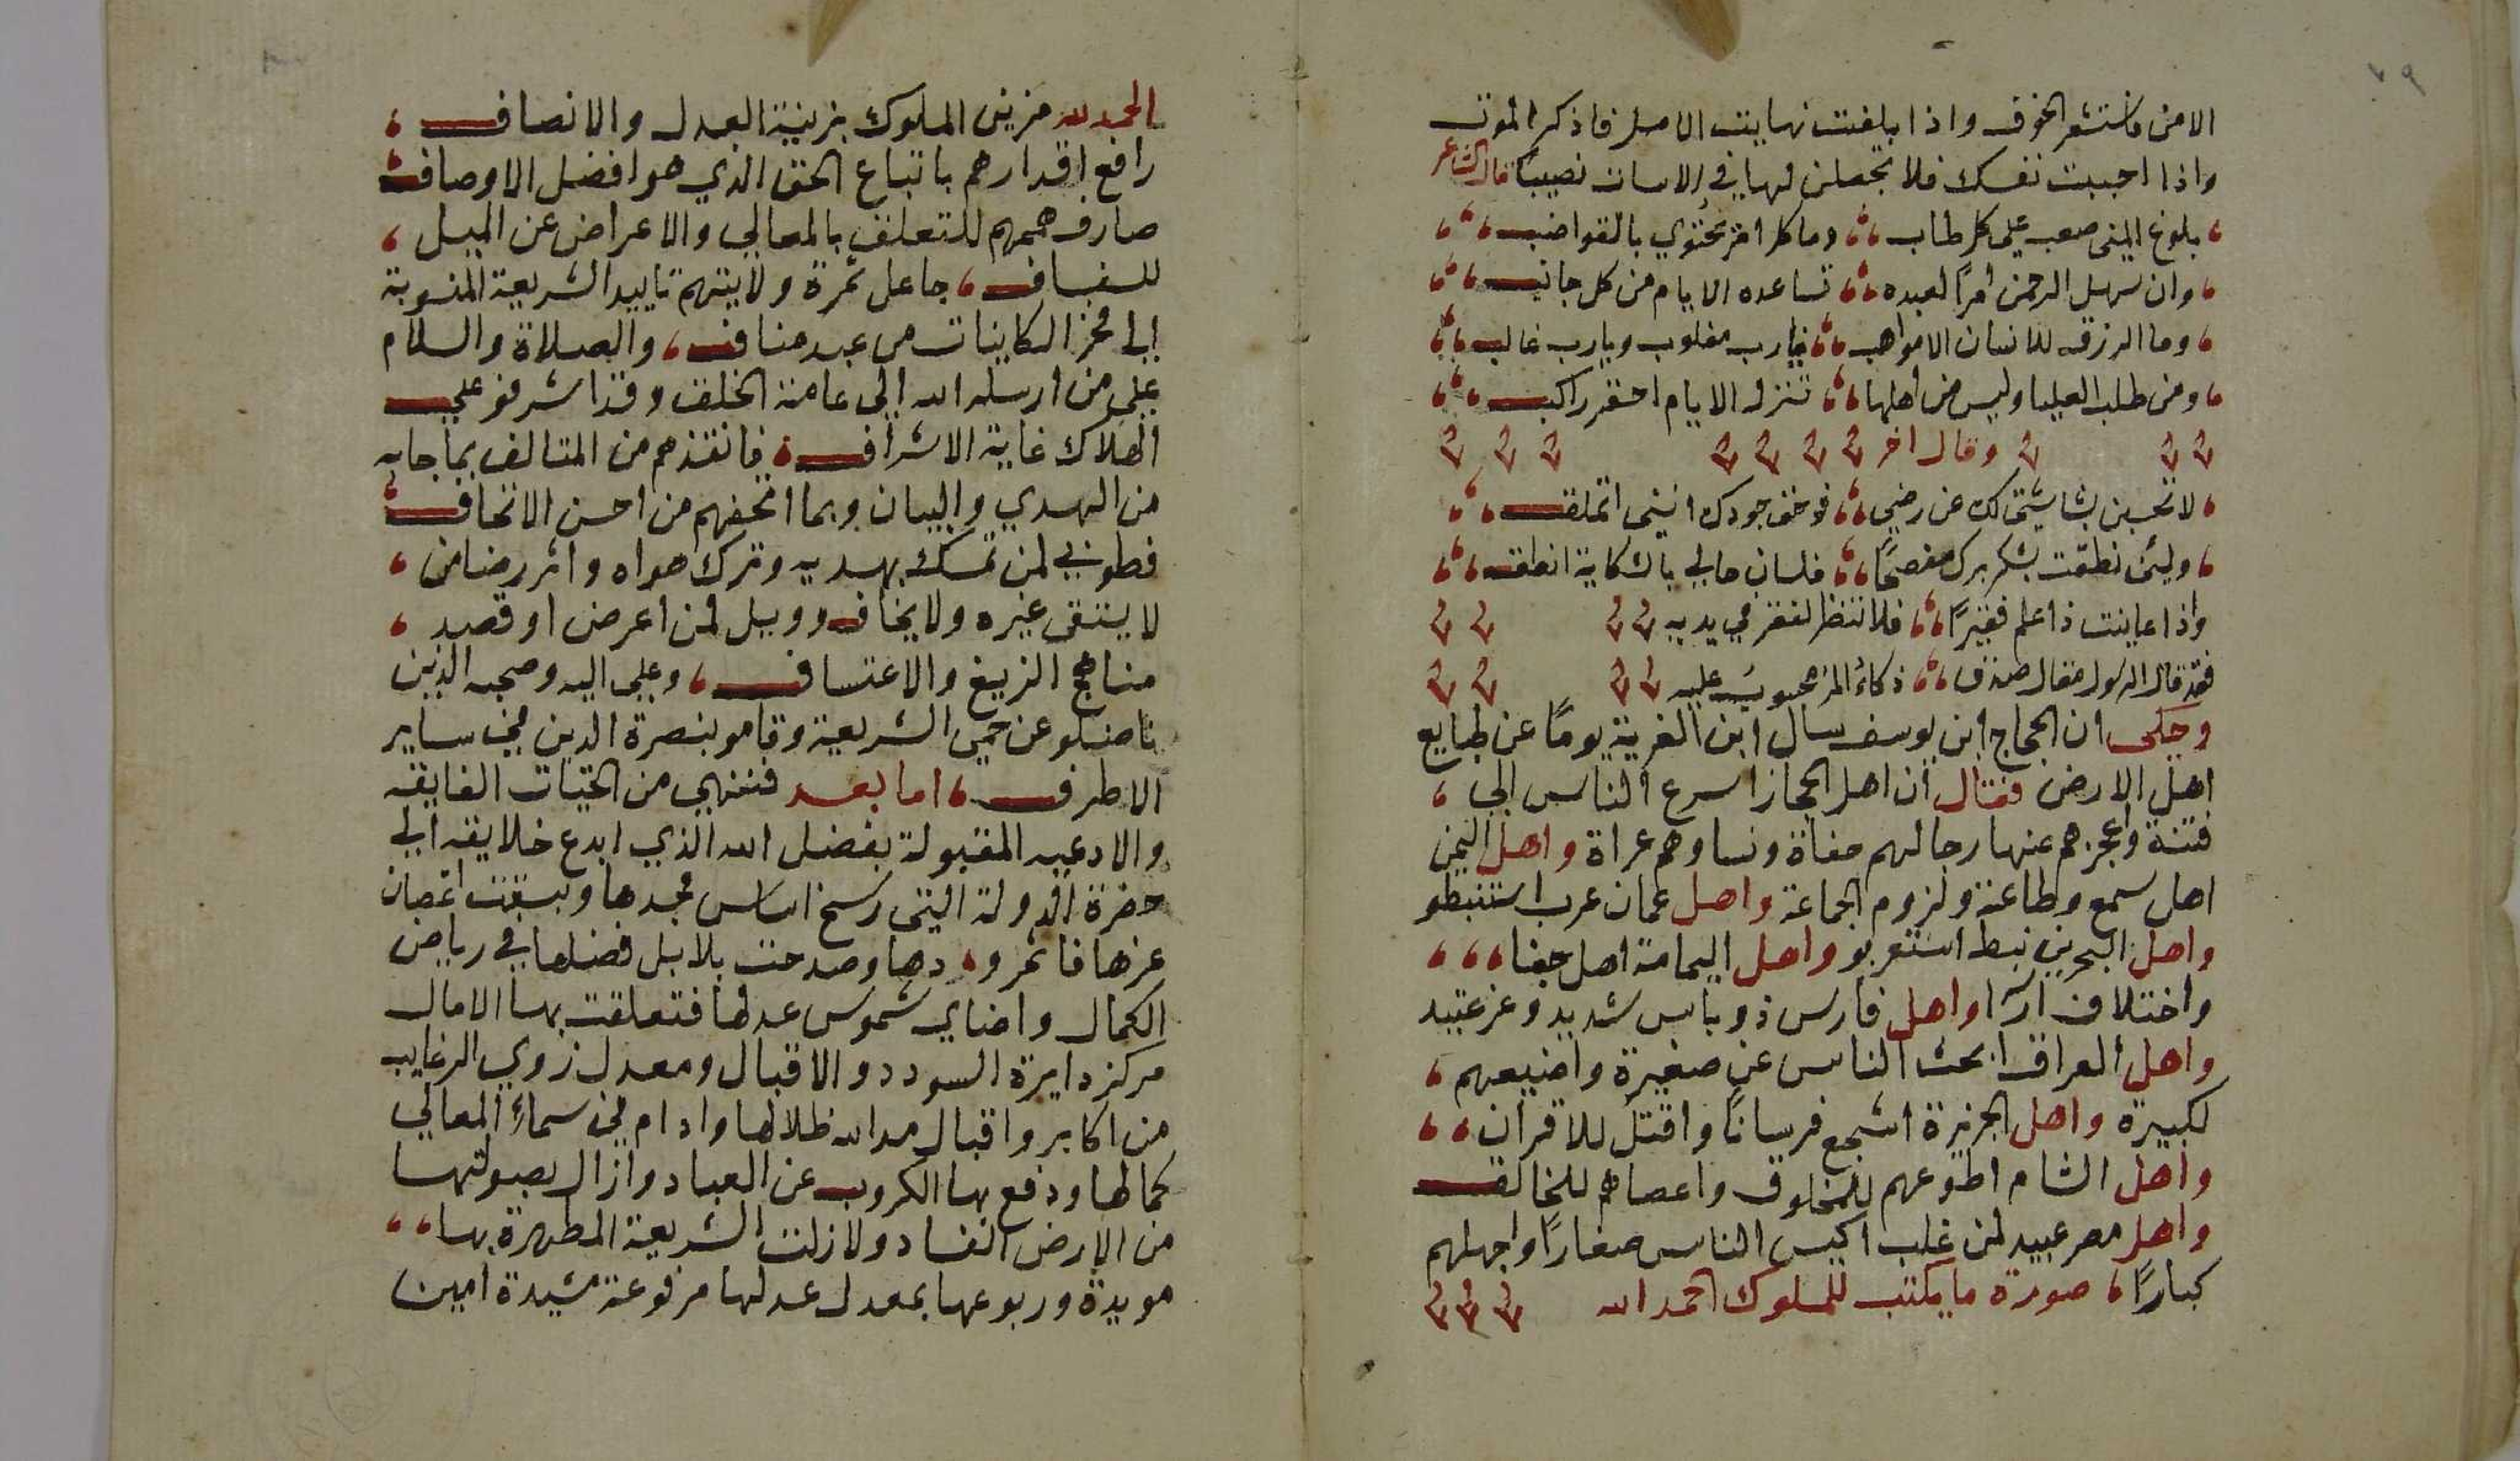 ٧٩
الامن فاستشعر الخوف واذا بلغت نهايت الامل فاذكر الموت
واذا احببت نفسك فلا تجعلن لها في الاسات نصيبًا قال الشاعر
، بلوغ المنى صعب على كل طالب ،، وما كل امر يحتوي بالقواضب ،،،
، وان سهل الرحمن امرًا لعبده ،،، تساعده الايام من كل جانب ،،،
، وما الرزق للانسان الا مواهب ،،، فيارب مغلوب ويارب غالب ،،،
، ومن طلب العليا وليس من اهلها ،،، تنزله الايام احقر راكب ،،،
وقال اخر
، لا تحسبن بشاشتي لك عن رضي ،،، فوحق جودك انني اتملق ،،،
، ولئن نطقت بشكر برك مفصحًا ،،، فلسان حالي بالشكاية انطق ،،،
واذا عاينت ذا علم فقيرًا ،،، فلا تنظر لفقر في يديه
فقد قال الرسول مقال صدق ،،، ذكاءُ المرء محسوبٌ عليه
وحكى ان الحجاج ابن يوسف سال ابن القرية يومًا عن طبايع
اهل الارض فقال ان اهل الحجاز اسرع الناس الى ،
فتنة واعجزهم عنها رجالهم حفاة ونساوهم عراة واهل اليمن
اهل سمع وطاعة ولزوم الجماعة واهل عمان عرب استنبطو
واهل البحرين نبط استعربو واهل اليمامة اهل جفا ،،،
واختلاف ارا واهل فارس ذو باس شديد وعز عتيد
واهل العراق ابحث الناس عن صغيرة واضيعهم ،
لكبيرة واهل الجزيرة اشجع فرسانًا واقتل للاقران ،،
واهل الشام اطوعهم للمخلوق واعصاهم للخالق
واهل مصر عبيد لمن غلب اكيس الناس صغارًا واجهلهم
كبارًا ، صورة ما يكتب للملوك الحمد الله
الحمد لله مزين الملوك بزينة العدل والانصاف ،
رافع اقدارهم باتباع الحق الذي هو افضل الاوصاف
صارف هممهم للتعلق بالمعالي والاعراض عن الميل ،
للسفساف ، جاعل ثمرة ولايتهم تاييد الشريعة المنسوبة
الى فخر الكاينات من عبد مناف ، والصلاة والسلام
على من ارسله الله الى عامة الخلق وقد اشرفو على
الهلاك غاية الاشراف ، فانقذهم من المتالف بما جا به
من الهدي والبيان وبما اتحفهم من احسن الاتحاف
فطوبى لمن تمسك بهديه وترك هواه واثر رضا من ،
لا يتقى غيره ولا يخاف وويل لمن اعرض او قصد ،
مناهج الزيغ والاعتساف ، وعلى اله وصحبه الذين
ناضلو عن حمى الشريعة وقامو بنصرة الدين في ساير
الاطرف ، اما بعد فننهي من التحيات الفايقه
والادعيه المقبولة بفضل الله الذي ابدع خلايقه الى
حضرة الدولة التي رسخ اساس مجدها وبسقت اغصان
عزها فاثمر و دها وصدحت بلابل فضلها في رياض
الكمال واضاي شموس عدلها فتعلقت بها الامال
مركز دايرة السودد والاقبال ومعدل زوي الرغايب
من اكابر واقبال مد الله ظلالها وادام في سماءِ المعالي
كمالها ودفع بها الكروب عن العباد وازال بصولتها
من الارض الفساد ولا زلت الشريعة المطهرة بها ،،
مويدة وربوعها بمعدل عدلها مرفوعة مشيدة امين